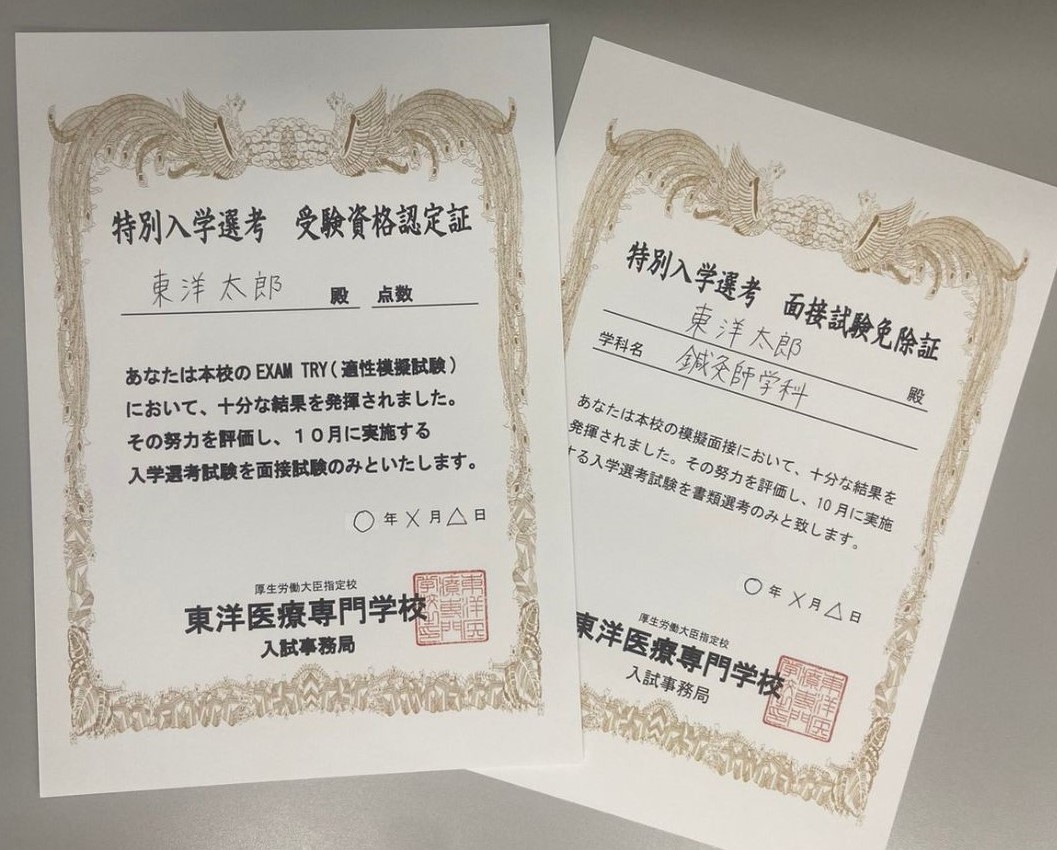 特別入学選考 受験資格認定証
東洋太郎 殿 点数
あなたは本校の EXAM TRY(適性模擬試験)
において、十分な結果を発揮されました。
その努力を評価し、10月に実施する
入学選考試験を面接試験のみといたします。
○年×月△日
厚生労働大臣指定校
東洋医療専門学校
入試事務局
特別入学選考 面接試験免除証
東洋太郎 殿
学科名 鍼灸師学科
あなたは本校の模擬面接において、十分な結果を
発揮されました。その努力を評価し、10月に実施
する入学選考試験を書類選考のみと致します。
○年×月△日
厚生労働大臣指定校
東洋医療専門学校
入試事務局